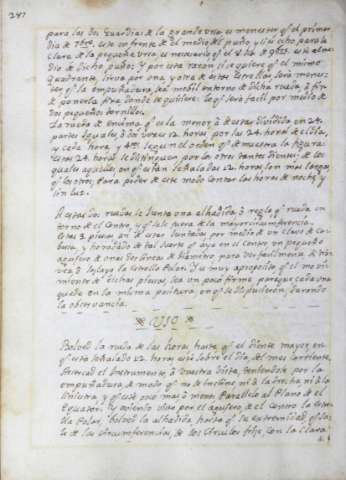 247
para las dos Guardias de la grande ursa es menester q̃ el primer
dia de 7bre. este en frente de el medio del puño, y si es solo para la
Clara de la pequeña ursa, es necesario q̃ el 4 dia de 9bre. este al me
dio de dicho puño: Y por esta razon si se quiere q̃ el mismo
quadrante, sirva por una y otra de estas Estrellas, será menes
ter q̃ la empuñadura, sea mobil entorno de dicha rueda, á fin
de ponerla fixa donde se quisiere: lo q̃ será facil por medio de
dos pequeños tornillos.
La rueda de encima q̃ es la menor, á de estar dividida en 24.
partes iguales, ó dos veces 12 horas por las 24. horas de el dia,
y cada hora y 4tos. segun el orden q̃ demuestra la figura:
Estas 24. horas se distinguen por los otros tantos dientes: de los
quales aquellos en q̃ están señaladas 12 horas son mas largos,
q̃ los otros, para poder de este modo contar las horas de noche y
sin luz.
A estas dos ruedas se junta una alhadida, ó regla q̃ rueda en
torno de el Centro, y q̃ sale fuera de la mayor circumferencia.
Estas 3. piezas an de estar juntadas por medio de un clavo de ca
beza, y horadado de tal suerte q̃ aya en el Centro un pequeño
agujero de unas dos lineas de diámetro para ver facilmente, á tra
vés, ó soslayo la estrella Polar. Y es muy aproposito q̃ el mo vi
miento de dichas piezas, sea un poco firme paraque cada una
quede en la misma positura, en q̃ se dispusieron, durante
la observancia.
USO
Bolved la rueda de las horas hasta q̃ el diente mayor, en
q̃ está señalado 12. horas esté sobre el dia, del mes corriente,
Acercad el Instrumento, á vuestra vista, teniendole por la
empuñadura de modo q̃ no se incline, ni á la derecha, ni á la
siniestra, y q̃ esté poco mas, ó menos Parallelo al Plano de el
Equator: Y aviendo visto por el agujero de el Centro la estre
lla Polar, bolved la alhadida hasta q̃ su extremidad, q̃ sa
le de las circumferencias, de los Circulos frise, con la Clara